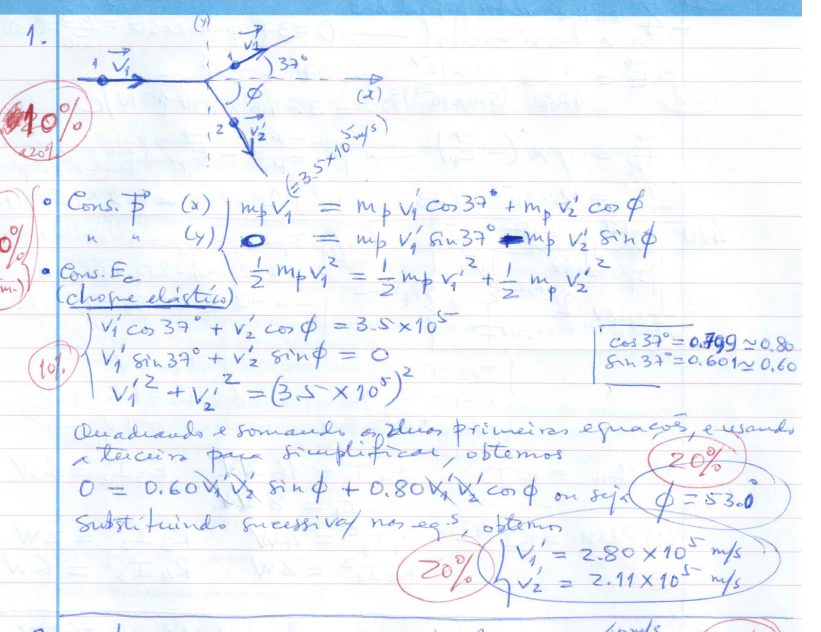 1.
(y)
1 V₁ 1 V₁' 37°
(x)
ϕ
2 V₂'
(=3.5×10⁵ m/s)
10%
20%
• Cons. P (x) mp V₁ = mp V₁' cos 37° + mp V₂' cos ϕ
" " (y) 0 = mp V₁' sin 37° - mp V₂' sin ϕ
• Cons. Ec ½ mp V₁² = ½ mp V₁'² + ½ mp V₂'²
(choque elástico)
V₁' cos 37° + V₂' cos ϕ = 3.5×10⁵
cos 37° = 0.799 ≃ 0.80
V₁' sin 37° + V₂' sin ϕ = 0
sin 37° = 0.601 ≃ 0.60
10%
V₁'² + V₂'² = (3.5×10⁵)²
Quadrando e somando as duas primeiras equações, e usando
a terceira para simplificar, obtemos
20%
0 = 0.60 V₁' V₂' sin ϕ + 0.80 V₁' V₂' cos ϕ ou seja ϕ = 53.0°
Substituindo sucessiva/ nas eq.s, obtemos
V₁' = 2.80×10⁵ m/s
20%
V₂' = 2.11×10⁵ m/s